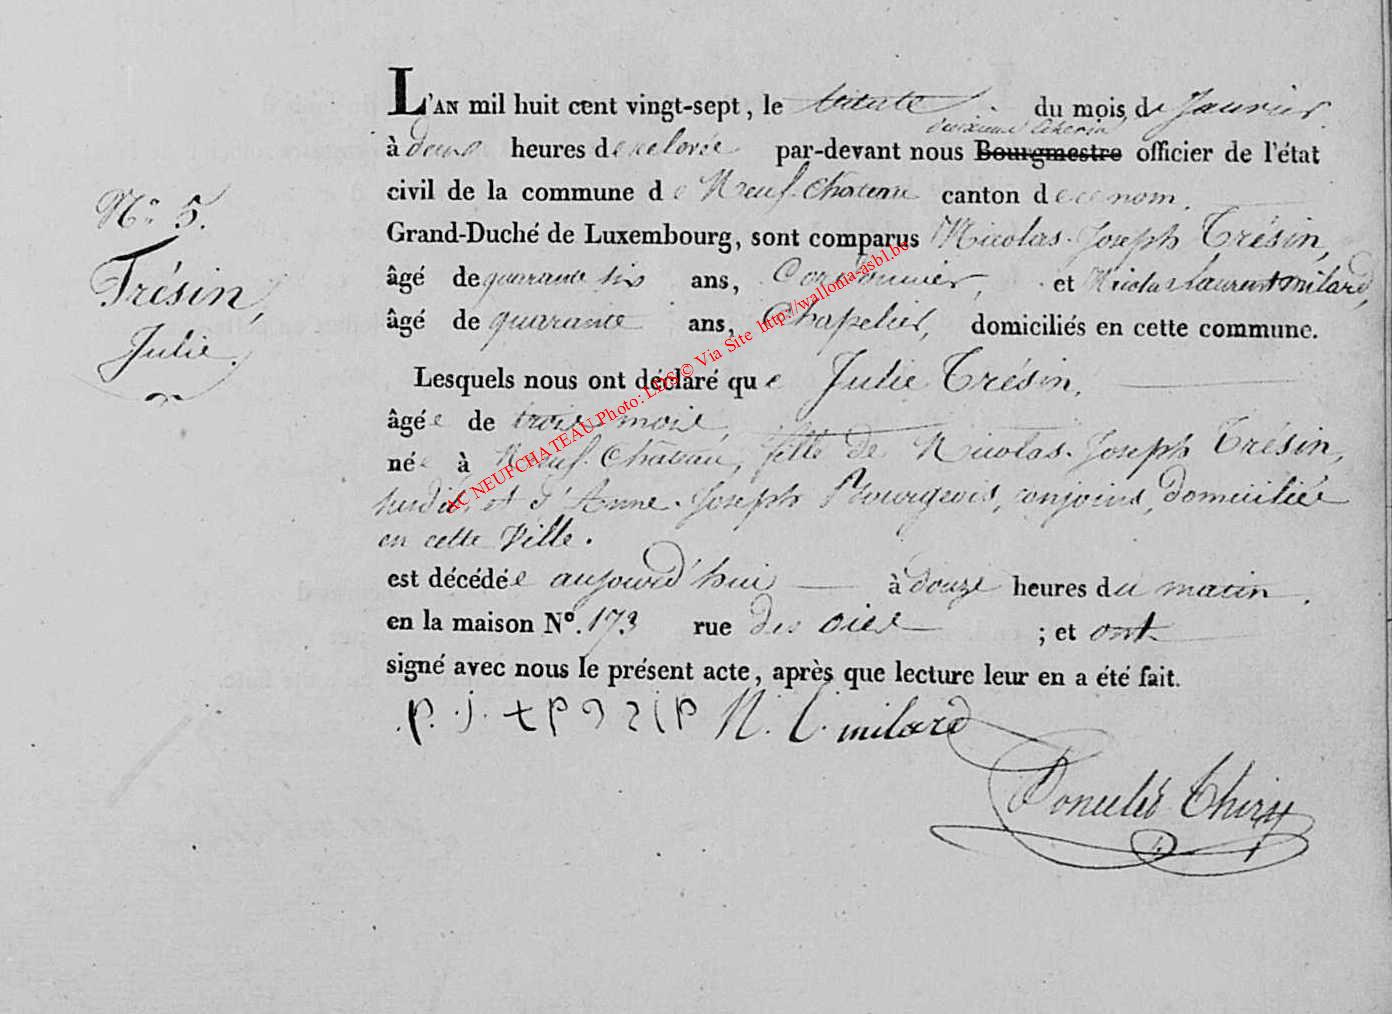 L'AN mil huit cent vingt-sept, le trente du mois de Janvier
deuxième Echevin
à deux heures de relevée par-devant nous Bourgmestre officier de l'état
civil de la commune de Neuf-Chateau canton de ce nom.
Grand-Duché de Luxembourg, sont comparus Nicolas-Joseph Trésin,
N° 5.
âgé de quarante six ans, Cordonnier, et Nicolas Laurent Milard,
Trésin,
âgé de quarante ans, Chapelier, domiciliés en cette commune.
Julie.
Lesquels nous ont déclaré que Julie Trésin,
âgée de trois mois,
née à Neuf-Chateau, fille de Nicolas-Joseph Trésin,
susdit, et d'Anne-Joseph Bourgeois, conjoins, domiciliés
en cette Ville.
est décédée aujourd'hui à douze heures du matin.
en la maison N°. 173 rue des oies ; et ont
signé avec nous le présent acte, après que lecture leur en a été fait.
N. L. milard
Poncelet Thiry
AC NEUFCHATEAU Photo: LDS © Via Site http://wallonia-asbl.be